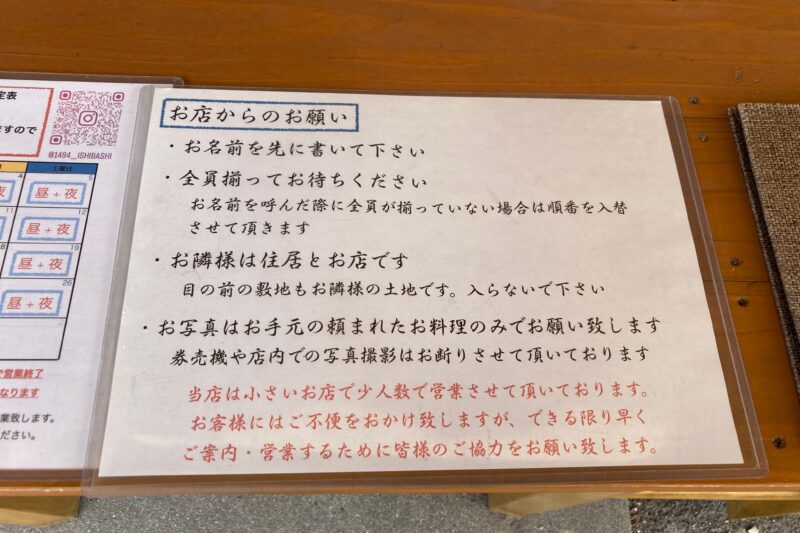 定表
ますので
@1484__ISHIBASHI
土曜日
4
5
夜
昼+夜
11
12
昼+夜
18
19
昼+夜
26
昼+夜
で営業終了
なります
業致します。
ださい。
お店からのお願い
・お名前を先に書いて下さい
・全員揃ってお待ちください
お名前を呼んだ際に全員が揃っていない場合は順番を入替
させて頂きます
・お隣様は住居とお店です
目の前の敷地もお隣様の土地です。入らないで下さい
・お写真はお手元の頼まれたお料理のみでお願い致します
券売機や店内での写真撮影はお断りさせて頂いております
当店は小さいお店で少人数で営業させて頂いております。
お客様にはご不便をおかけ致しますが、できる限り早く
ご案内・営業するために皆様のご協力をお願い致します。